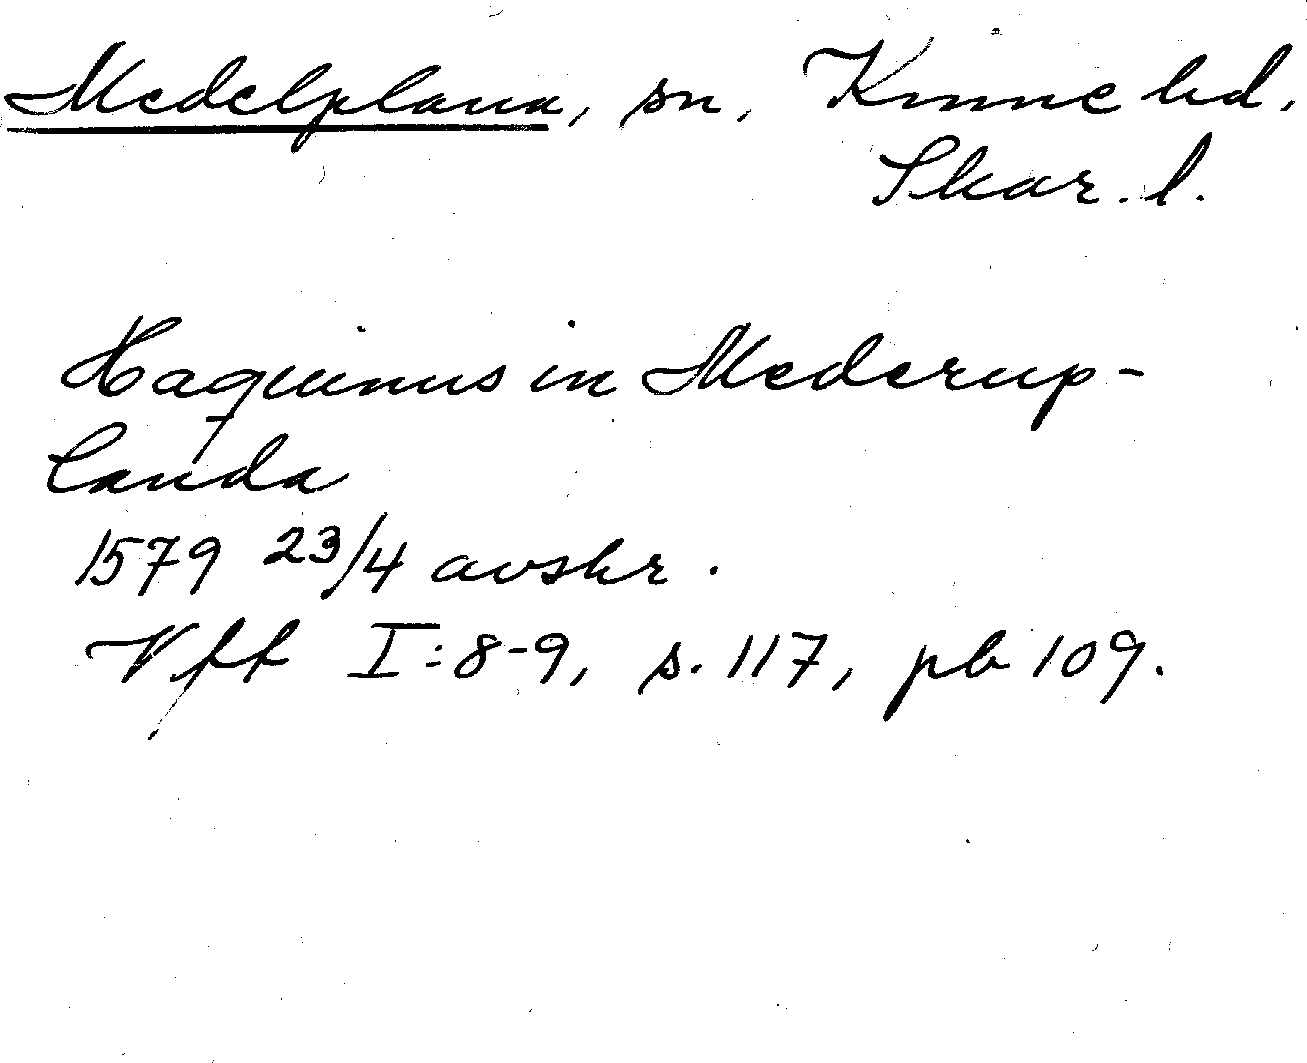 Medelplana, sn, Kinne hd,
Skar. l.
Haquinus in Mederup-
landa
1579 23/4 avskr.
Vff I:8-9, s. 117, pb 109.